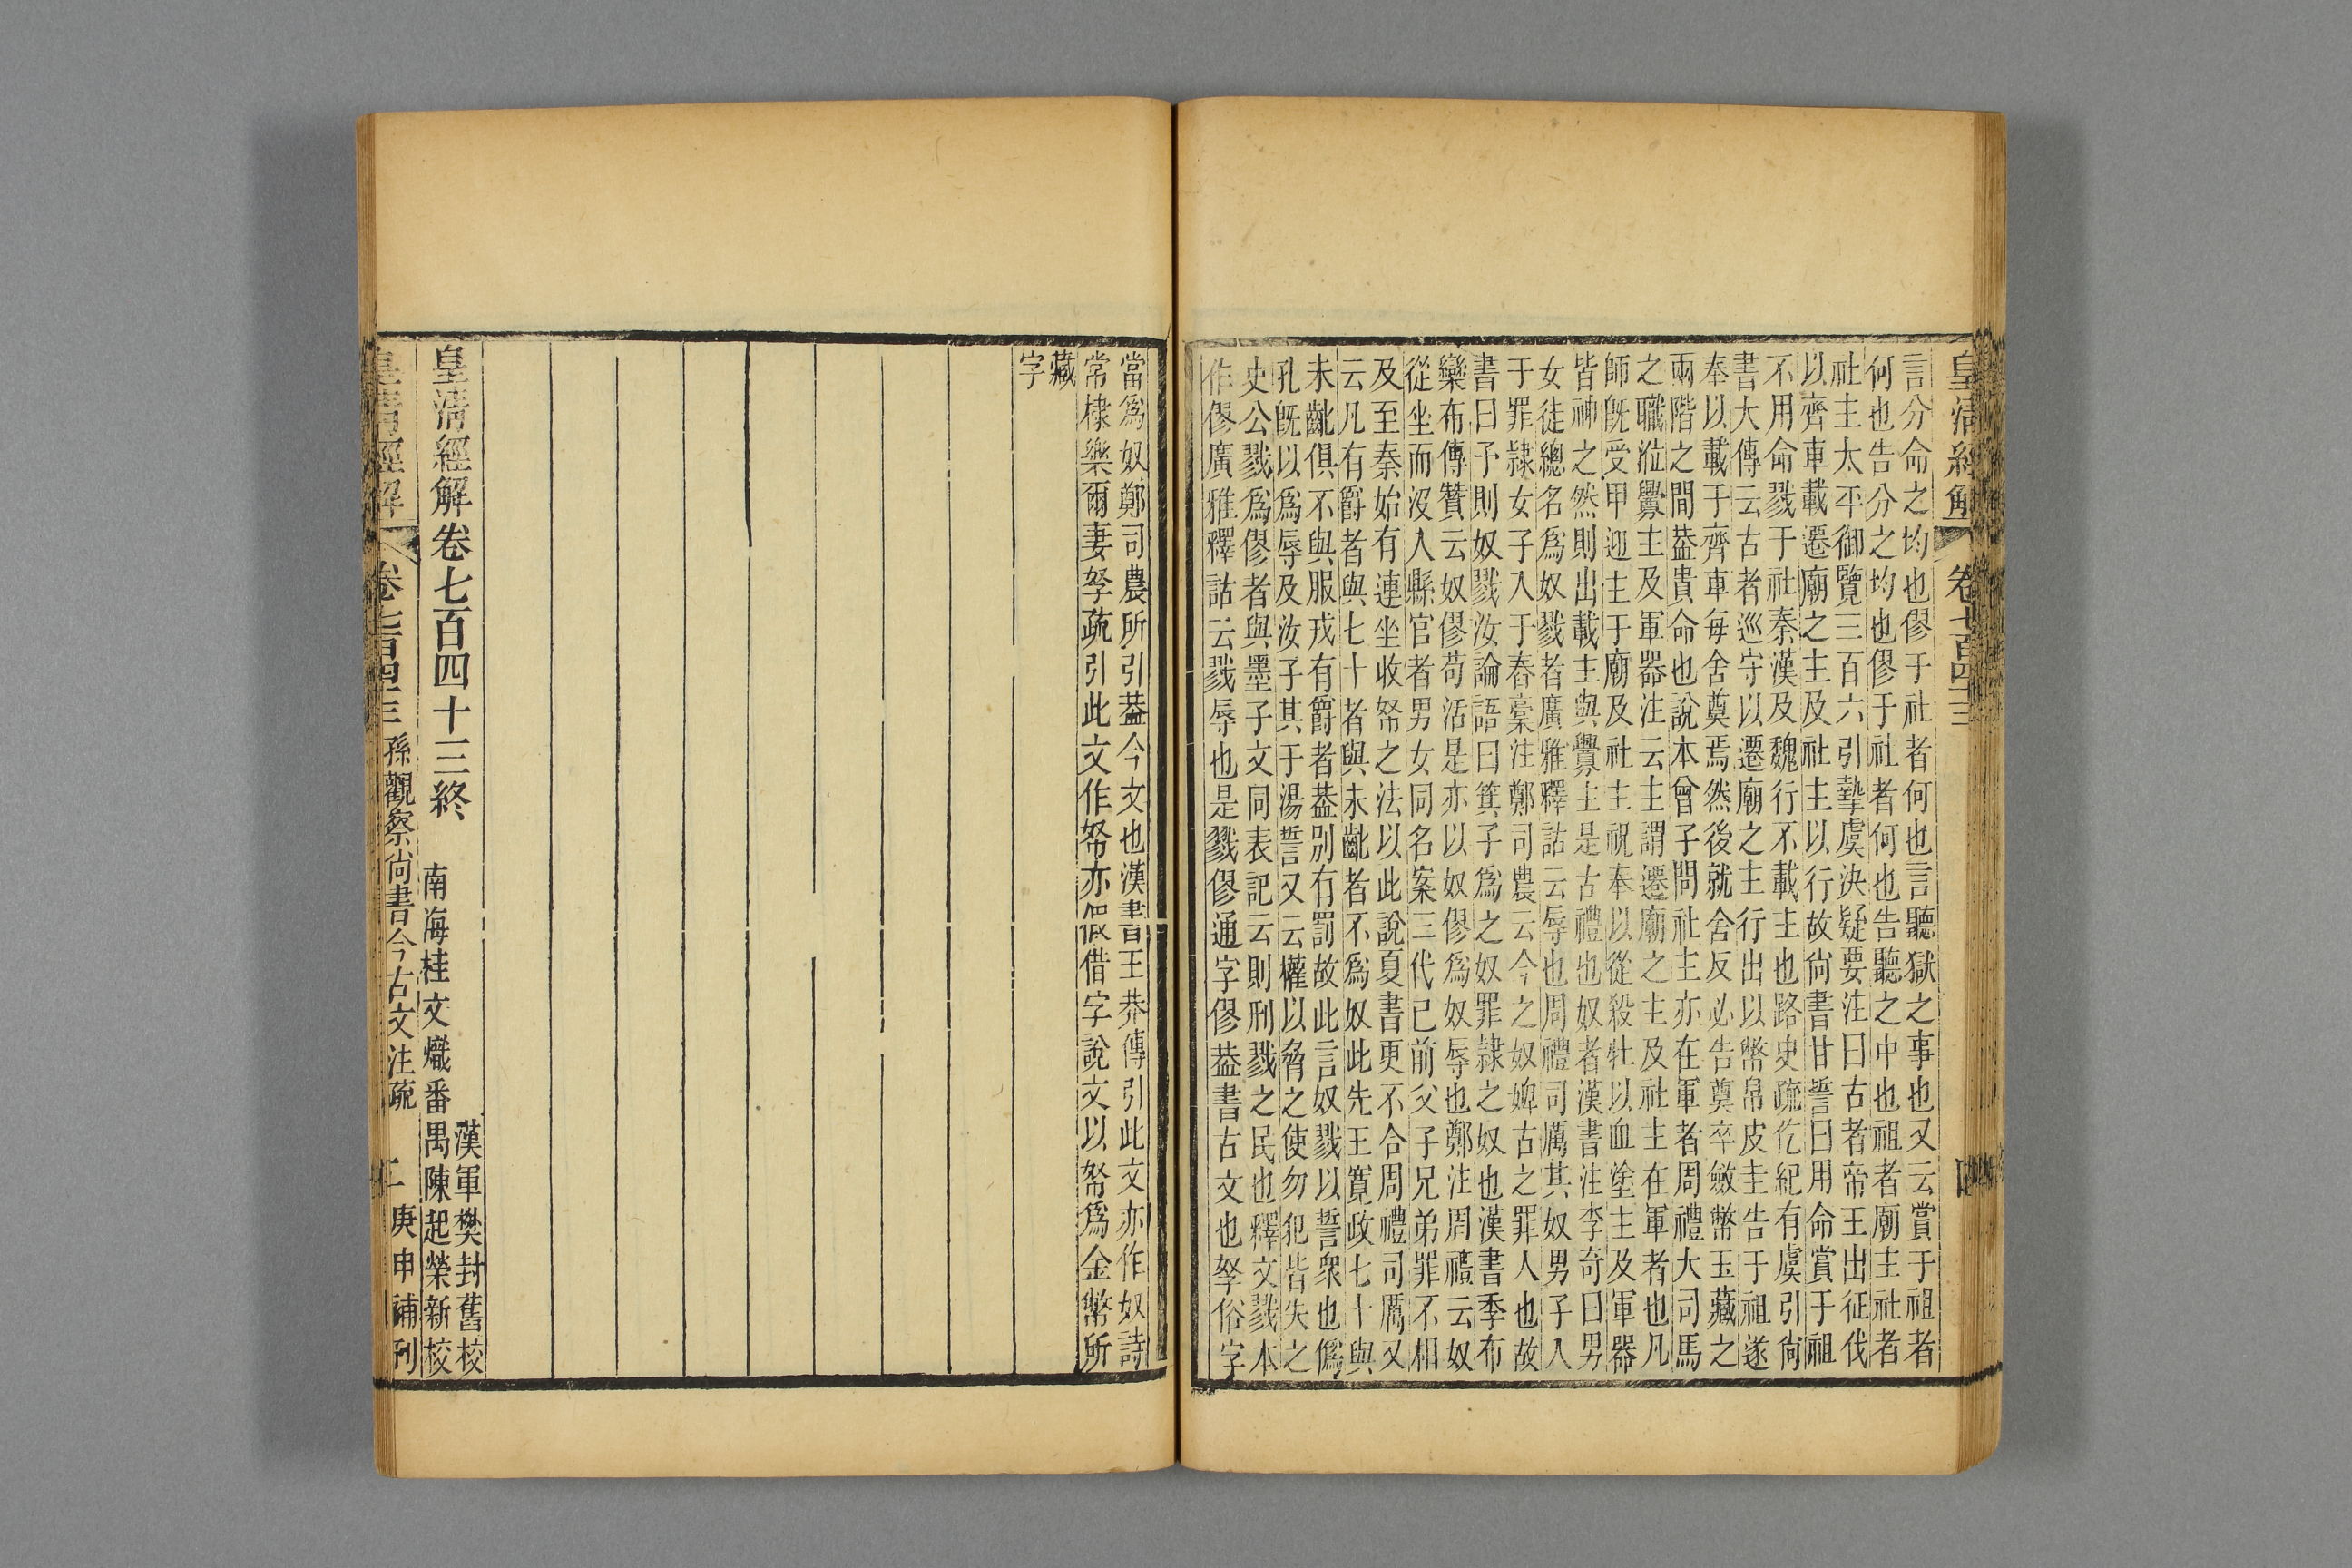 皇清經解
卷七百四十三
四
言分命之均也僇于社者何也言聽獄之事也又云賞于祖者
何也告分之均也僇于社者何也告聽之中也祖者廟主社者
社主太平御覽三百六引摯虞決疑要注曰古者帝王出征伐
以齊車載遷廟之主及社主以行故尙書甘誓曰用命賞于祖
不用命戮于社秦漢及魏行不載主也路史疏仡紀有虞引尙
書大傳云古者巡守以遷廟之主行出以幣帛皮圭告于祖遂
奉以載于齊車每舍奠焉然後就舍反必告奠卒斂幣玉藏之
兩階之間葢貴命也說本曾子問社主亦在軍者周禮大司馬
之職涖釁主及軍器注云主謂遷廟之主及社主在軍者也凡
師旣受甲迎主于廟及社主祝奉以從殺牡以血塗主及軍器
皆神之然則出載主與釁主是古禮也奴者漢書注李奇曰男
女徒總名爲奴戮者廣雅釋詁云辱也周禮司厲其奴男子入
于罪隷女子入于舂槀注鄭司農云今之奴婢古之罪人也故
書曰予則奴戮汝論語曰箕子爲之奴罪隷之奴也漢書季布
欒布傳贊云奴僇苟活是亦以奴僇爲奴辱也鄭注周禮云奴
從坐而沒入縣官者男女同名案三代已前父子兄弟罪不相
及至秦始有連坐收帑之法以此說夏書更不合周禮司厲又
云凡有爵者與七十者與未齔者不爲奴此先王寬政七十與
未齔俱不與服戎有爵者葢別有罰故此言奴戮以誓衆也僞
孔旣以爲辱及汝子其于湯誓又云權以脅之使勿犯皆失之
史公戮爲僇者與墨子文同表記云則刑戮之民也釋文戮本
作僇廣雅釋詁云戮辱也是戮僇通字僇葢書古文也孥俗字
當爲奴鄭司農所引葢今文也漢書王莽傳引此文亦作奴詩
常棣樂爾妻孥疏引此文作帑亦假借字說文以帑爲金幣所
藏
字
皇清經解卷七百四十三終
漢軍樊封舊校
南海桂文熾番禺陳起榮新校
皇清經解
卷七百四十三
孫觀察尙書今古文注疏
庚申補刊